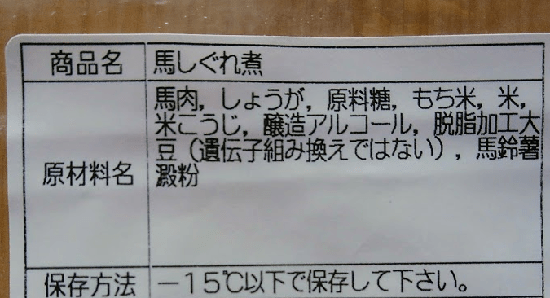 商品名 馬しぐれ煮
馬肉，しょうが，原料糖，もち米，米，
米こうじ，醸造アルコール，脱脂加工大
原材料名 豆（遺伝子組み換えではない），馬鈴薯
澱粉
保存方法 －１５℃以下で保存して下さい。